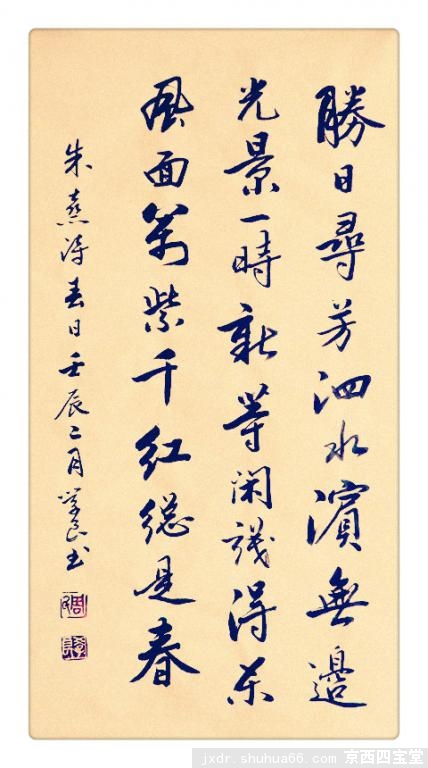 勝日尋芳泗水濱無邊
光景一時新等閑識得東
風面萬紫千紅總是春
朱熹詩春日壬辰二月學良书
jxdr.shuhua66.com 京西四宝堂